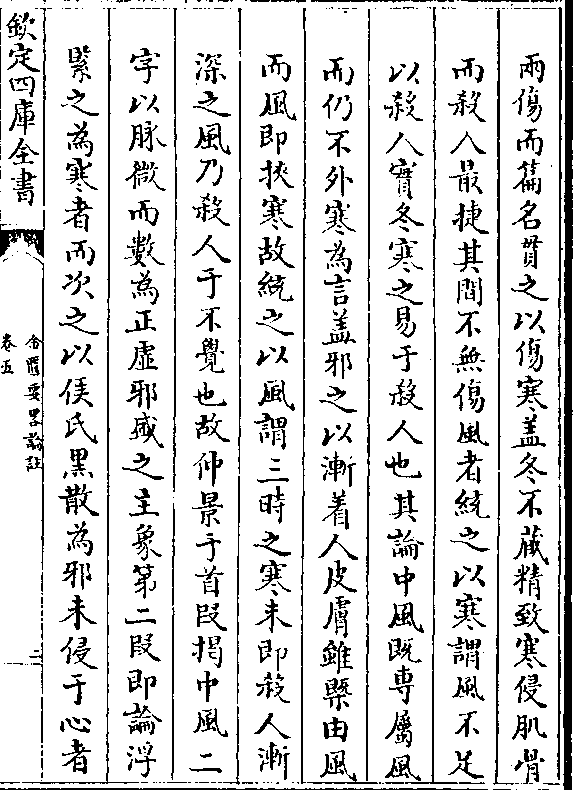 兩傷而篇名貫之以傷寒盖冬不藏精致寒侵肌骨
而殺人最捷其間不無傷風者統之以寒謂風不足
以殺人實冬寒之易于殺人也其論中風既專屬風
而仍不外寒為言盖邪之以漸着人皮膚雖槩由風
而風即挾寒故統之以風謂三時之寒未即殺人漸
深之風乃殺人于不覺也故仲景于首段揭中風二
字以脉微而數為正虛邪盛之主象第二段即論浮
緊之為寒者而次之以侯氏黑散為邪未侵于心者
欽定四庫全書
金匱要畧論註
卷五
二